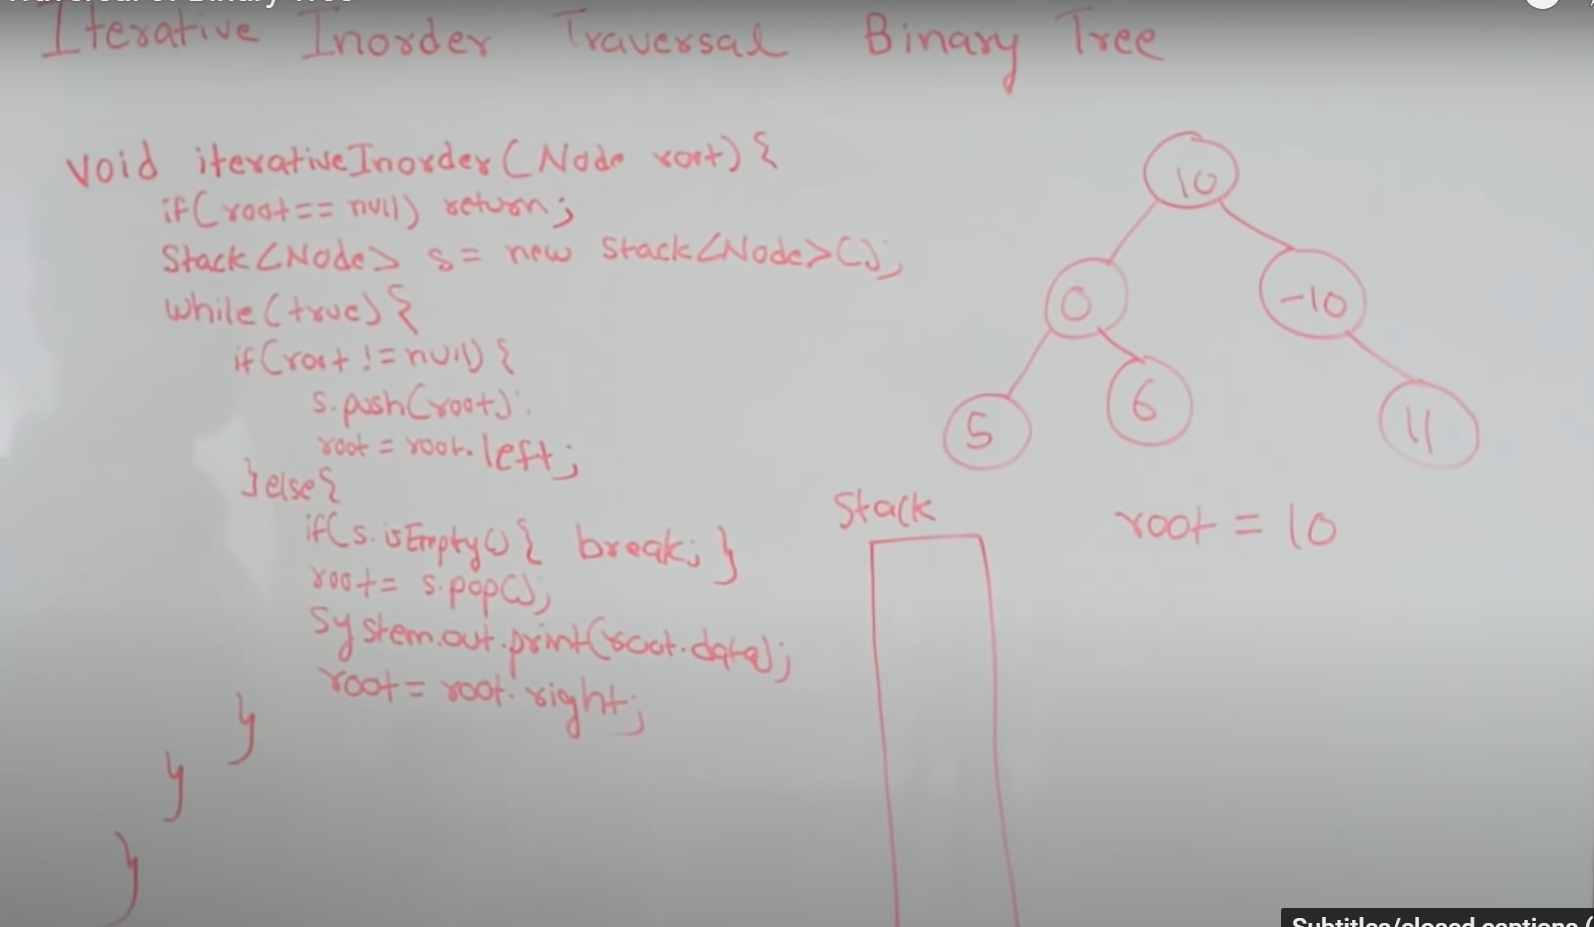 Iterative Inorder Traversal Binary Tree
void iterativeInorder(Node root){
if(root== null) return;
Stack<Node> s= new Stack<Node>();
while(true){
if(root != null) {
s.push(root);
root = root.left;
}else{
if(s.isEmpty(){ break; }
root= s.pop();
System.out.print(root.data);
root= root.right;
}
}
}
10
0
-10
5
6
11
Stack
root = 10